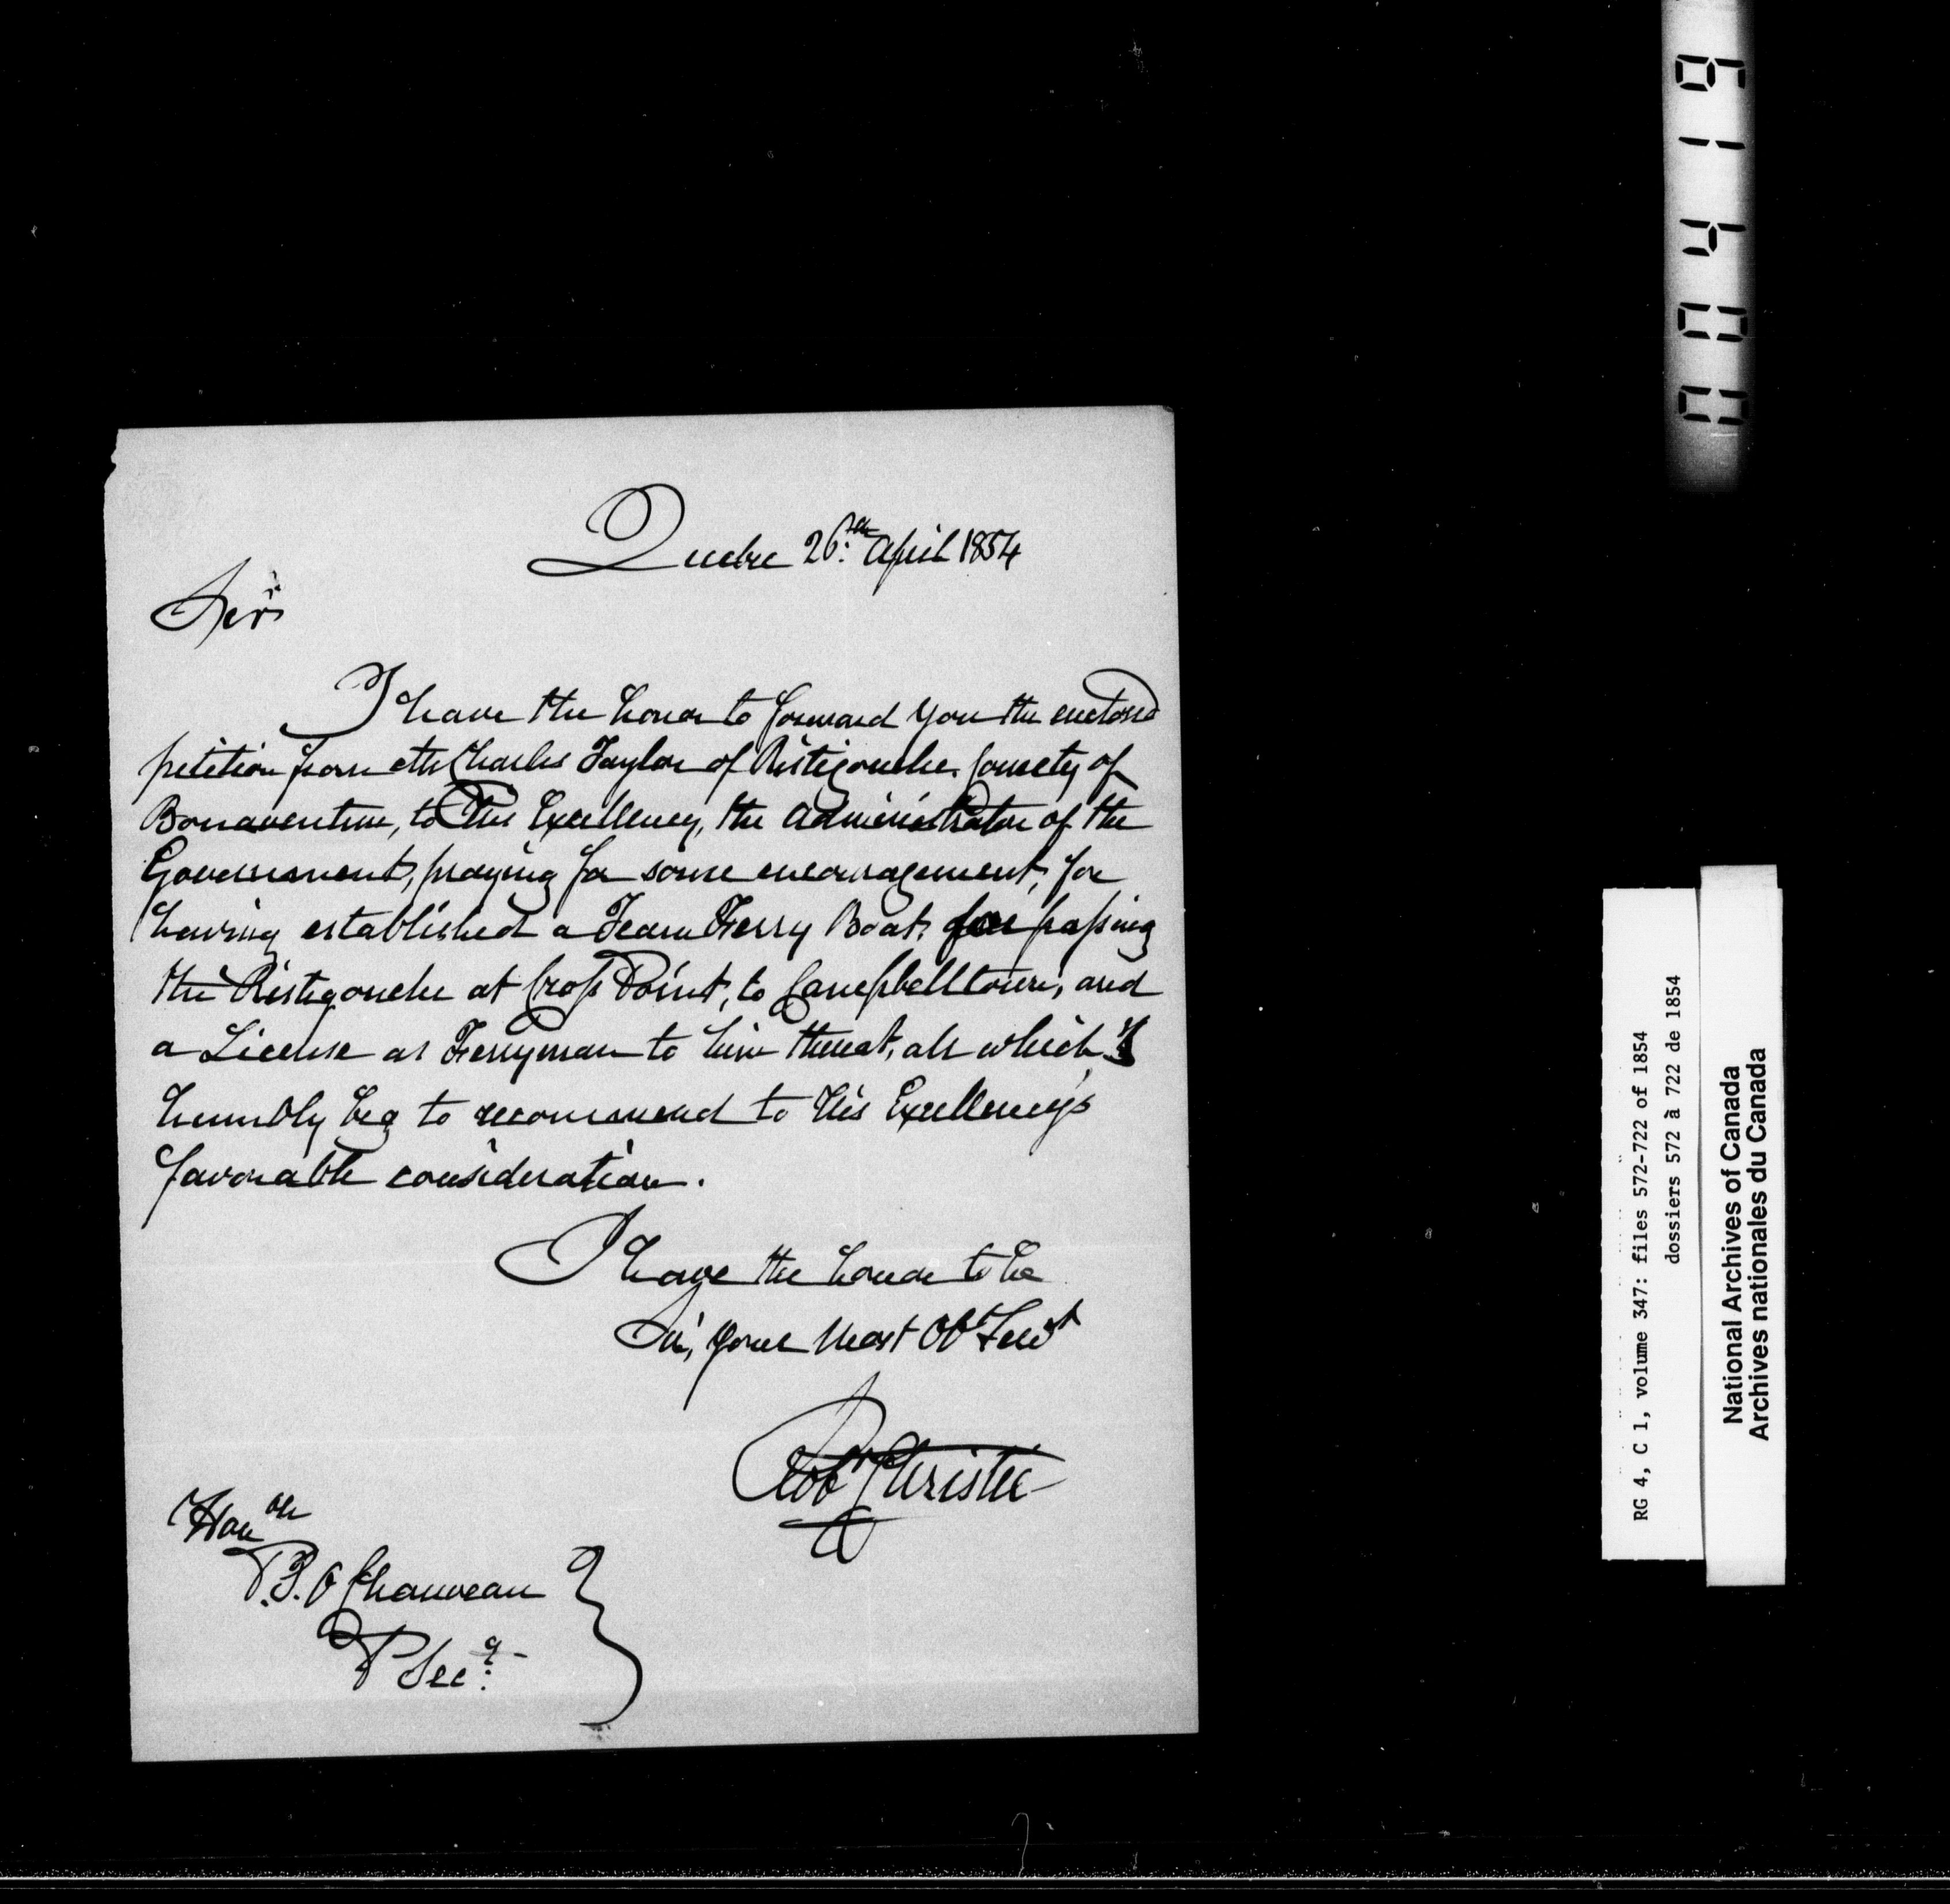 Quebec 26th April 1854
Sir
I have the honor to forward you the enclosed
petition from Mr Charles Taylor of Ristigouche County of
Bonaventure, to His Excellency, the Administrator of the
Government, praying for some encouragement, for
having established a Team Ferry Boat, for passing
the Ristigouche at Cross Point, to Campbelltown, and
a License as Ferryman to him thereat, all which I
humbly beg to recommend to His Excellency's
favorable consideration.
I have the honor to be
Sir, your Most Obt Servt
Robt Christie
Honble
P.J.O Chauveau
P Secy
RG 4, C 1, volume 347: files 572-722 of 1854
dossiers 572 à 722 de 1854
National Archives of Canada
Archives nationales du Canada